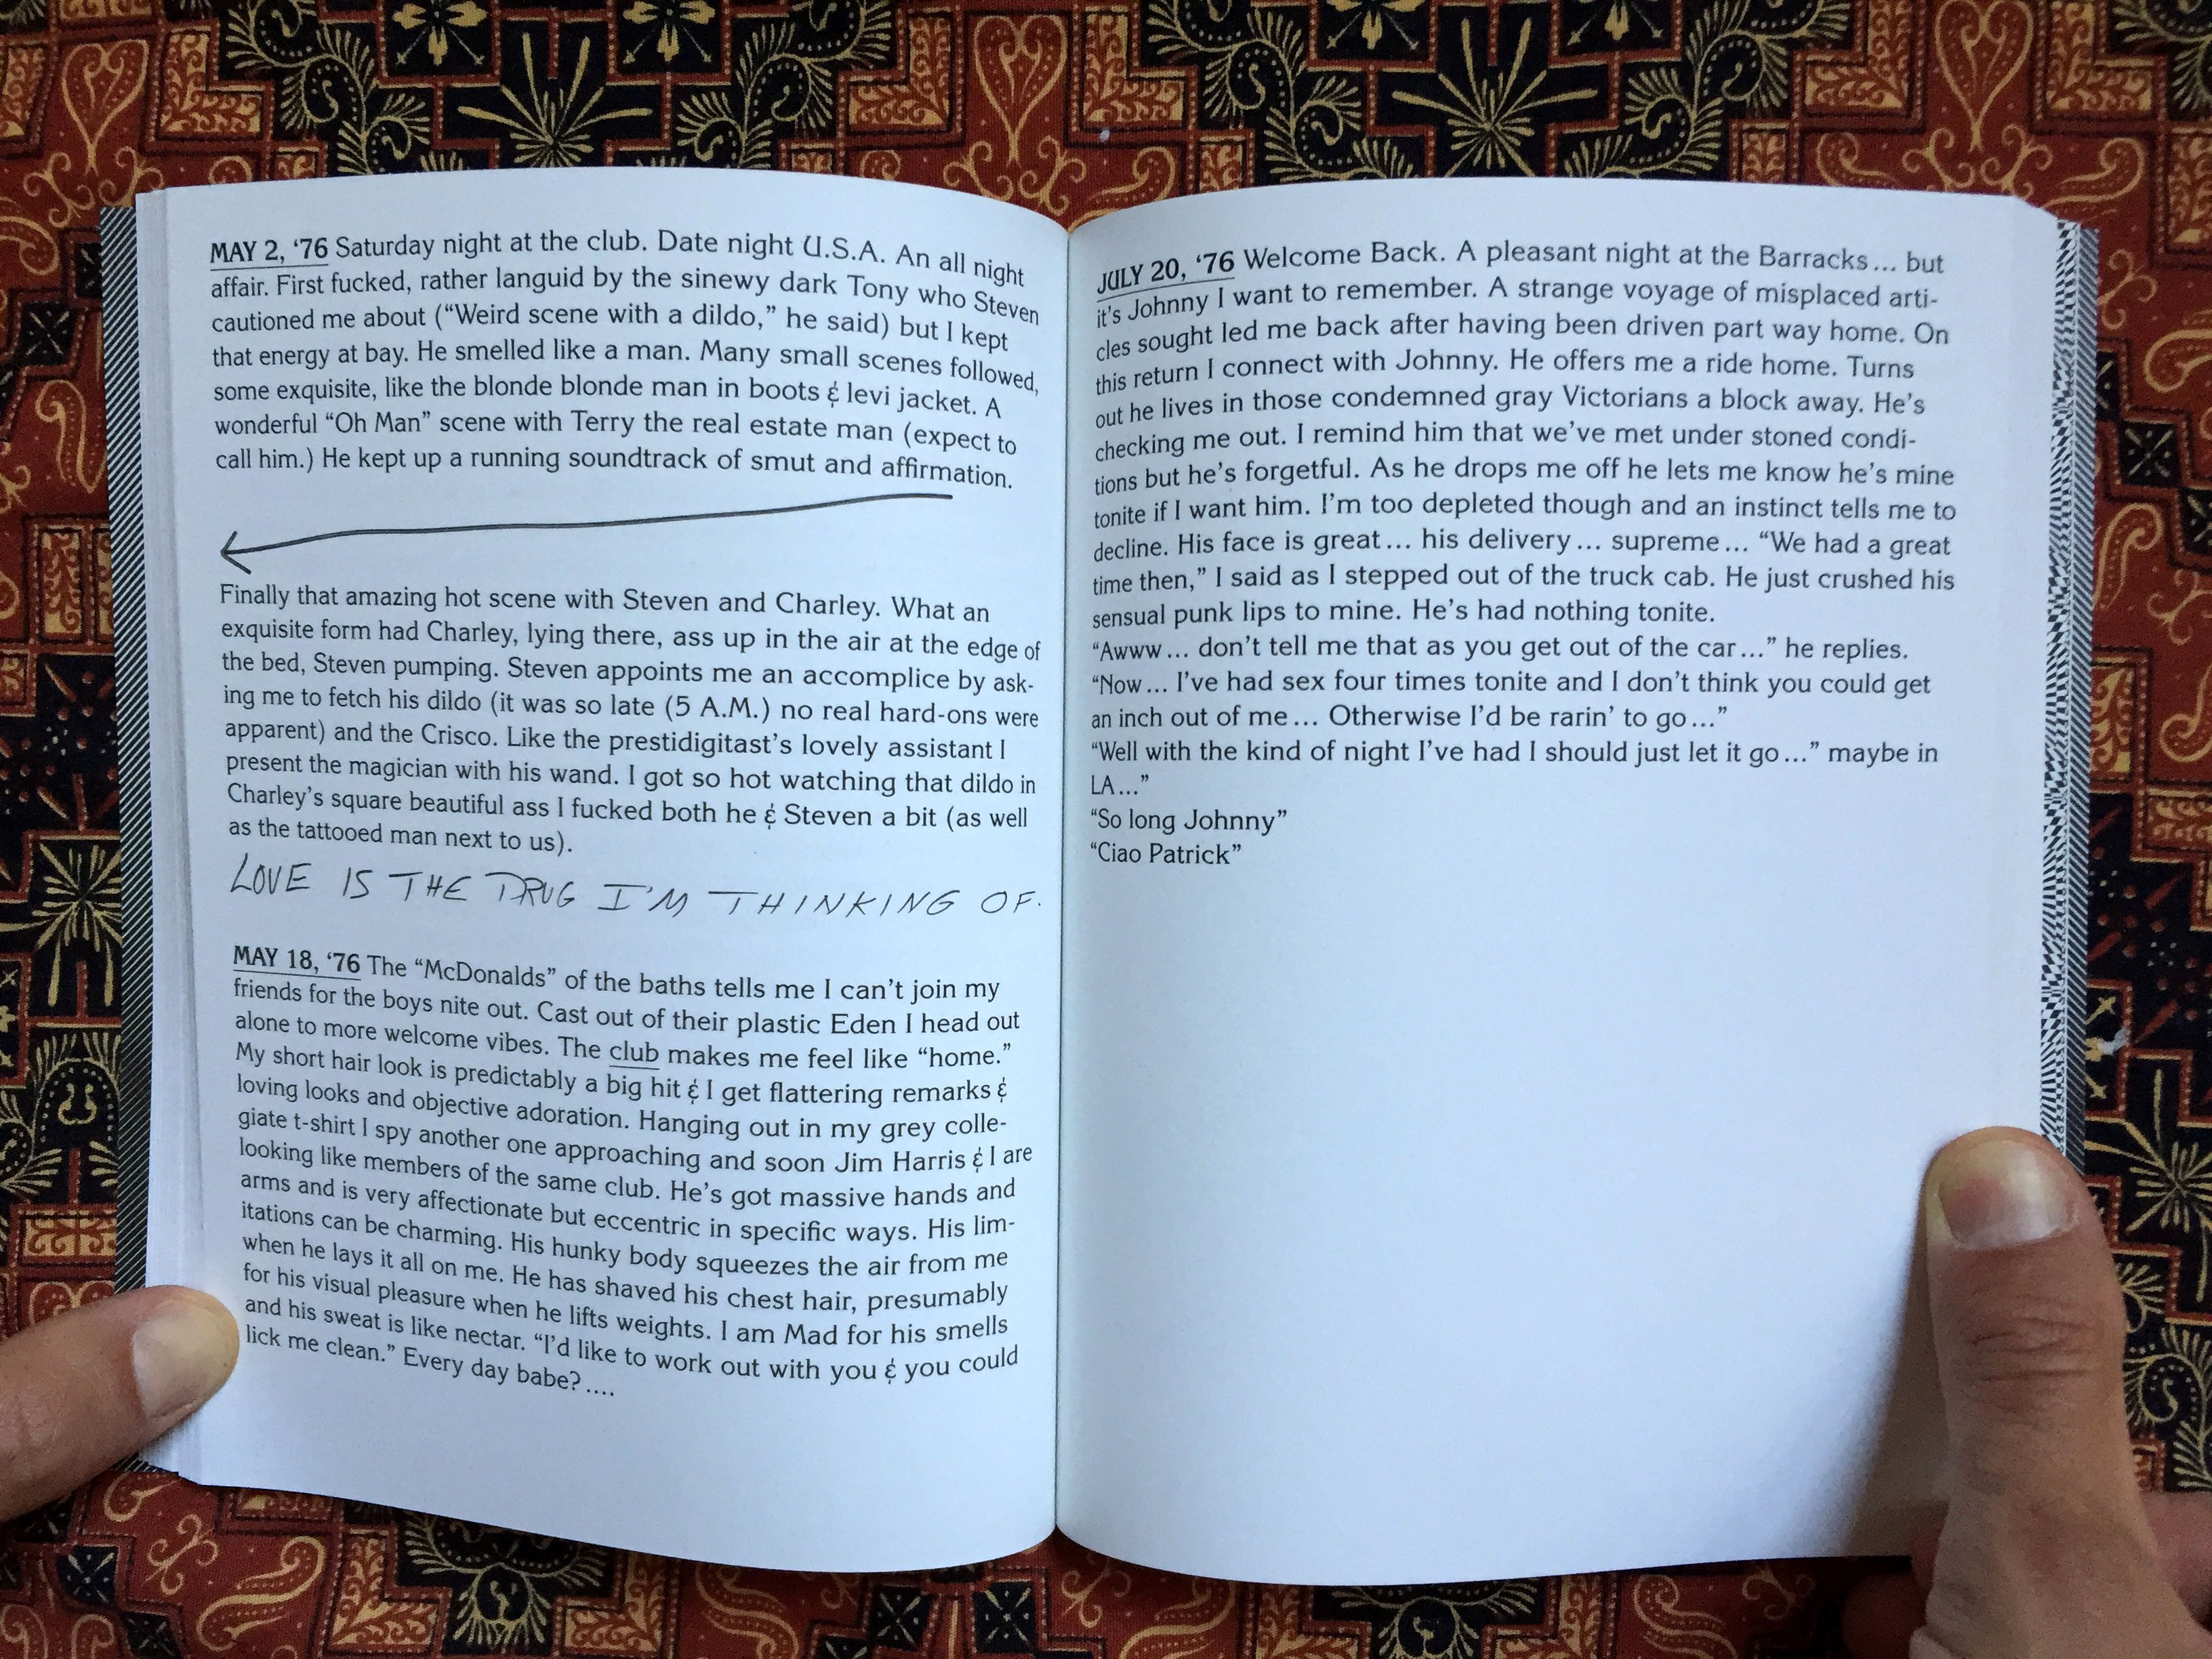 MAY 2, ‘76 Saturday night at the club. Date night U.S.A. An all night
affair. First fucked, rather languid by the sinewy dark Tony who Steven
cautioned me about (“Weird scene with a dildo,” he said) but I kept
that energy at bay. He smelled like a man. Many small scenes followed,
some exquisite, like the blonde blonde man in boots & levi jacket. A
wonderful “Oh Man” scene with Terry the real estate man (expect to
call him.) He kept up a running soundtrack of smut and affirmation.
Finally that amazing hot scene with Steven and Charley. What an
exquisite form had Charley, lying there, ass up in the air at the edge of
the bed, Steven pumping. Steven appoints me an accomplice by ask-
ing me to fetch his dildo (it was so late (5 A.M.) no real hard-ons were
apparent) and the Crisco. Like the prestidigitast’s lovely assistant I
present the magician with his wand. I got so hot watching that dildo in
Charley’s square beautiful ass I fucked both he & Steven a bit (as well
as the tattooed man next to us).
LOVE IS THE DRUG I'M THINKING OF.
MAY 18, ‘76 The “McDonalds” of the baths tells me I can’t join my
friends for the boys nite out. Cast out of their plastic Eden I head out
alone to more welcome vibes. The club makes me feel like “home.”
My short hair look is predictably a big hit & I get flattering remarks &
loving looks and objective adoration. Hanging out in my grey colle-
giate t-shirt I spy another one approaching and soon Jim Harris & I are
looking like members of the same club. He’s got massive hands and
arms and is very affectionate but eccentric in specific ways. His lim-
itations can be charming. His hunky body squeezes the air from me
when he lays it all on me. He has shaved his chest hair, presumably
for his visual pleasure when he lifts weights. I am Mad for his smells
and his sweat is like nectar. “I’d like to work out with you & you could
lick me clean.” Every day babe?....
JULY 20, ‘76 Welcome Back. A pleasant night at the Barracks... but
it’s Johnny I want to remember. A strange voyage of misplaced arti-
cles sought led me back after having been driven part way home. On
this return I connect with Johnny. He offers me a ride home. Turns
out he lives in those condemned gray Victorians a block away. He’s
checking me out. I remind him that we’ve met under stoned condi-
tions but he’s forgetful. As he drops me off he lets me know he’s mine
tonite if I want him. I’m too depleted though and an instinct tells me to
decline. His face is great... his delivery... supreme... “We had a great
time then,” I said as I stepped out of the truck cab. He just crushed his
sensual punk lips to mine. He’s had nothing tonite.
“Awww... don’t tell me that as you get out of the car...” he replies.
“Now... I’ve had sex four times tonite and I don’t think you could get
an inch out of me... Otherwise I’d be rarin’ to go...”
“Well with the kind of night I’ve had I should just let it go...” maybe in
LA...”
“So long Johnny”
“Ciao Patrick”